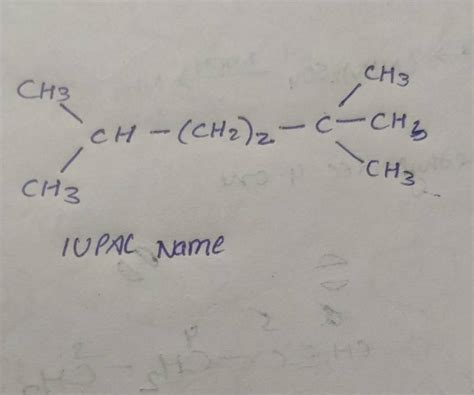 CH3
CH3
CH – (CH2)2 – C – CH3
CH3
CH3
IUPAC Name